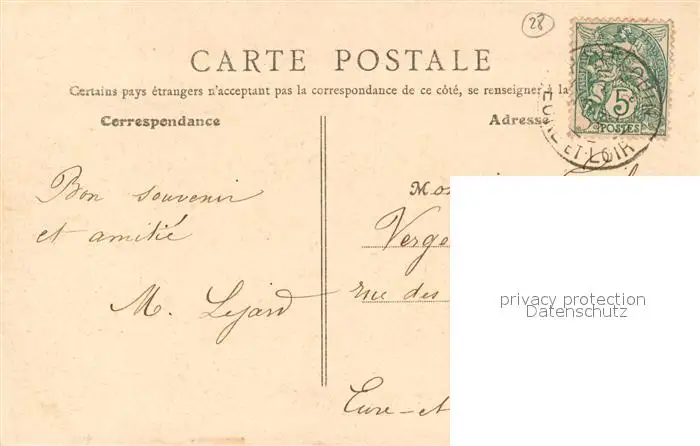 28
CARTE POSTALE
Certains pays étrangers n'acceptant pas la correspondance de ce côté, se renseigner à la
Correspondance
Adresse
5c
POSTES
EURE-ET-LOIR
Bon souvenir
et amitié
M. Lejard
Mo
Verge
rue des
Eure-et
privacy protection
Datenschutz